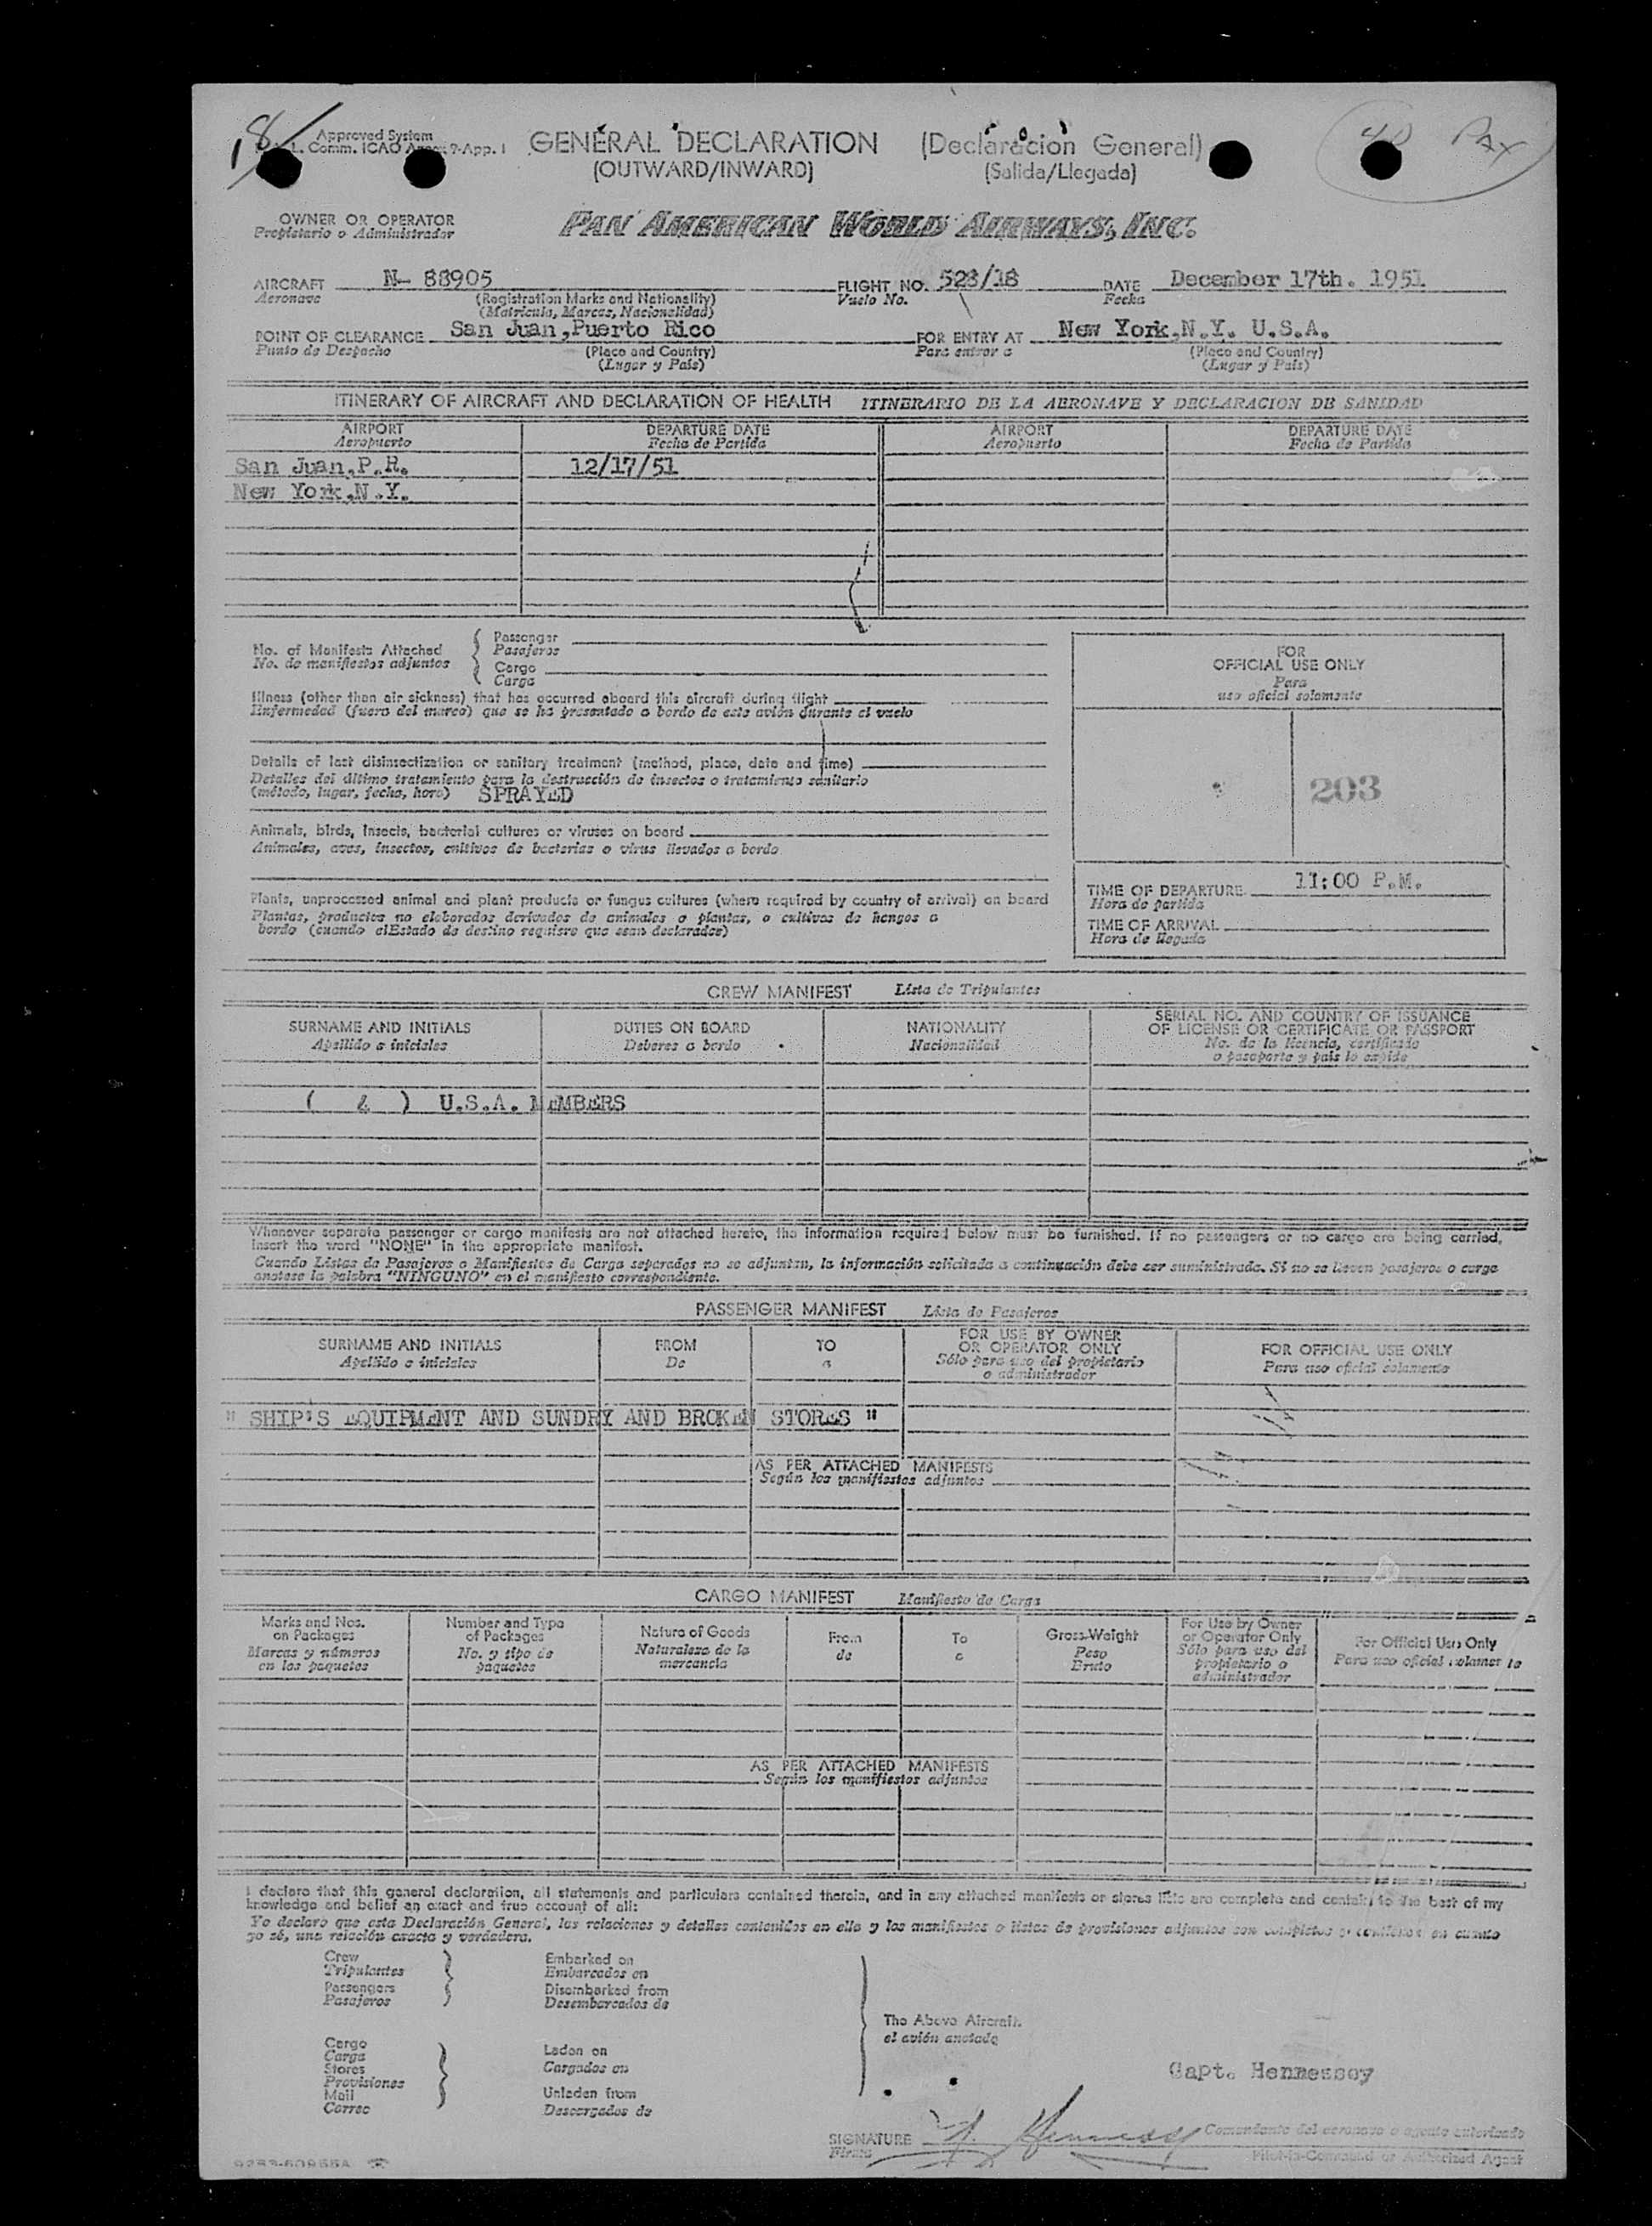 18
Approved System
Comm. ICAO Annex 9-App. I
GENERAL DECLARATION (Declaración General)
(OUTWARD/INWARD) (Salida/Llegada)
Pax
OWNER OR OPERATOR
Propietario o Administrador
PAN AMERICAN WORLD AIRWAYS, INC.
AIRCRAFT N- 88905 FLIGHT NO. 523/18 DATE December 17th. 1951
Aeronave (Registration Marks and Nationality) Vuelo No. Fecha
(Matrícula, Marcas, Nacionalidad)
POINT OF CLEARANCE San Juan,Puerto Rico FOR ENTRY AT New York,N.Y. U.S.A.
Punto de Despacho (Place and Country) Para entrar a (Place and Country)
(Lugar y País) (Lugar y País)
ITINERARY OF AIRCRAFT AND DECLARATION OF HEALTH ITINERARIO DE LA AERONAVE Y DECLARACION DE SANIDAD
AIRPORT DEPARTURE DATE AIRPORT DEPARTURE DATE
Aeropuerto Fecha de Partida Aeropuerto Fecha de Partida
San Juan,P.R. 12/17/51
New York,N.Y.
No. of Manifests Attached
No. de manifiestos adjuntos
Passenger
Pasajeros
Cargo
Carga
FOR
OFFICIAL USE ONLY
Para
uso oficial solamente
Illness (other than air sickness) that has occurred aboard this aircraft during flight
Enfermedad (fuera del mareo) que se ha presentado a bordo de este avión durante el vuelo
Details of last disinsectization or sanitary treatment (method, place, date and time)
Detalles del último tratamiento para la destrucción de insectos o tratamiento sanitario
(método, lugar, fecha, hora) SPRAYED
203
Animals, birds, insects, bacterial cultures or viruses on board
Animales, aves, insectos, cultivos de bacterias o virus llevados a bordo
Plants, unprocessed animal and plant products or fungus cultures (where required by country of arrival) on board
Plantas, productos no elaborados derivados de animales o plantas, o cultivos de hongos a
bordo (cuando elEstado de destino requiere que sean declarados)
TIME OF DEPARTURE 11:00 P.M.
Hora de partida
TIME OF ARRIVAL
Hora de llegada
CREW MANIFEST Lista de Tripulantes
SURNAME AND INITIALS DUTIES ON BOARD NATIONALITY SERIAL NO. AND COUNTRY OF ISSUANCE
OF LICENSE OR CERTIFICATE OR PASSPORT
Apellido e iniciales Deberes a bordo Nacionalidad No. de la licencia, certificado
o pasaporte y país lo expide
( ) U.S.A. MEMBERS
Whenever separate passenger or cargo manifests are not attached hereto, the information required below must be furnished. If no passengers or no cargo are being carried,
insert the word "NONE" in the appropriate manifest.
Cuando Listas de Pasajeros o Manifiestos de Carga separados no se adjuntan, la información solicitada a continuación debe ser suministrada. Si no se llevan pasajeros o carga
anótese la palabra "NINGUNO" en el manifiesto correspondiente.
PASSENGER MANIFEST Lista de Pasajeros
SURNAME AND INITIALS FROM TO FOR USE BY OWNER
OR OPERATOR ONLY FOR OFFICIAL USE ONLY
Apellido e iniciales De a Sólo para uso del propietario
o administrador Para uso oficial solamente
" SHIP'S EQUIPMENT AND SUNDRY AND BROKEN STORES "
AS PER ATTACHED MANIFESTS
Según los manifiestos adjuntos
CARGO MANIFEST Manifiesto de Carga
Marks and Nos.
on Packages
Marcas y números
en los paquetes
Number and Type
of Packages
No. y tipo de
paquetes
Nature of Goods
Naturaleza de la
mercancía
From
de
To
a
Gross-Weight
Peso
Bruto
For Use by Owner
or Operator Only
Sólo para uso del
propietario o
administrador
For Official Use Only
Para uso oficial solamente
AS PER ATTACHED MANIFESTS
Según los manifiestos adjuntos
I declare that this general declaration, all statements and particulars contained therein, and in any attached manifests or stores lists are complete and contain, to the best of my
knowledge and belief an exact and true account of all:
Yo declaro que esta Declaración General, las relaciones y detalles contenidos en ella y los manifiestos o listas de provisiones adjuntos son completos y contienen en cuanto
yo sé, una relación exacta y verdadera.
Crew
Tripulantes
Passengers
Pasajeros
Embarked on
Embarcados en
Disembarked from
Desembarcados de
Cargo
Carga
Stores
Provisiones
Mail
Correo
Laden on
Cargados en
Unladen from
Descargados de
The Above Aircraft.
el avión anotado
Capt. Hennessey
SIGNATURE
Firma
Comandante del aeronave o agente autorizado
Pilot-in-Command or Authorized Agent